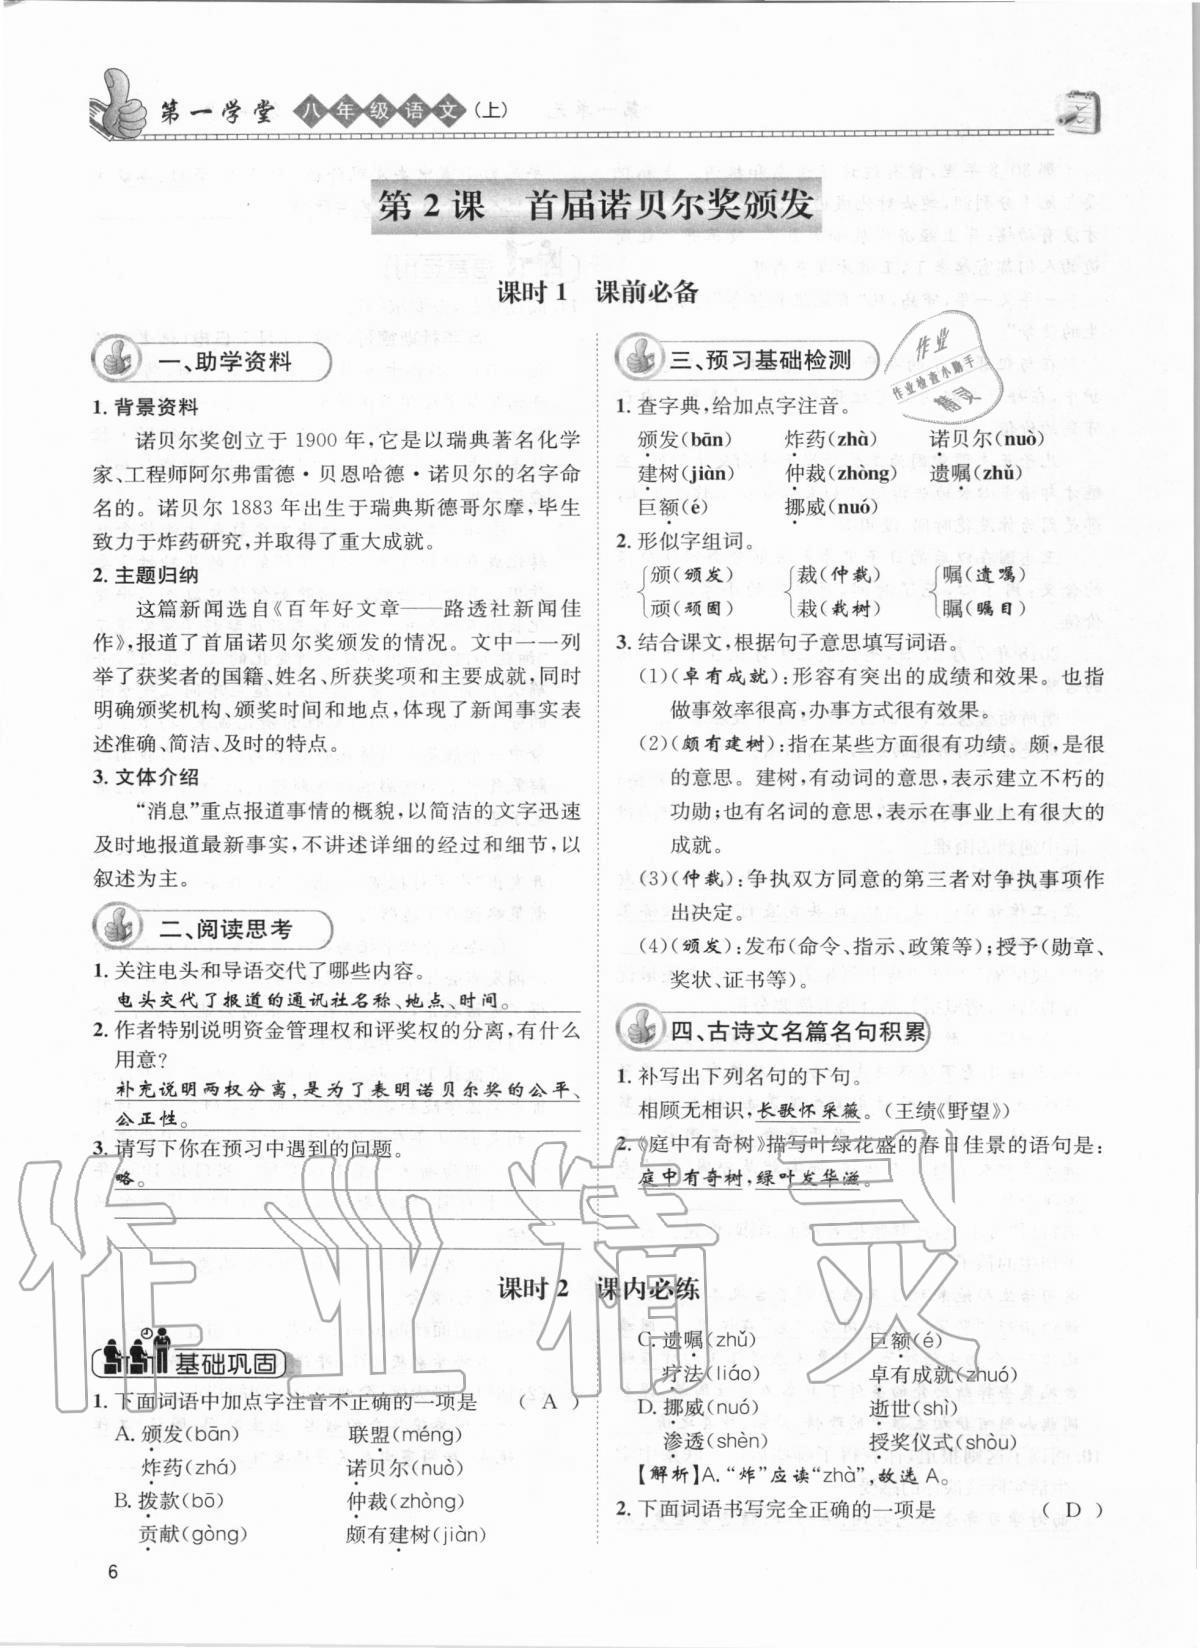 第一学堂 八年级语文(上)
第2课 首届诺贝尔奖颁发
课时1 课前必备
一、助学资料
1. 背景资料
诺贝尔奖创立于1900年,它是以瑞典著名化学
家、工程师阿尔弗雷德·贝恩哈德·诺贝尔的名字命
名的。诺贝尔1883年出生于瑞典斯德哥尔摩,毕生
致力于炸药研究,并取得了重大成就。
2. 主题归纳
这篇新闻选自《百年好文章——路透社新闻佳
作》,报道了首届诺贝尔奖颁发的情况。文中一一列
举了获奖者的国籍、姓名、所获奖项和主要成就,同时
明确颁奖机构、颁奖时间和地点,体现了新闻事实表
述准确、简洁、及时的特点。
3. 文体介绍
“消息”重点报道事情的概貌,以简洁的文字迅速
及时地报道最新事实,不讲述详细的经过和细节,以
叙述为主。
二、阅读思考
1. 关注电头和导语交代了哪些内容。
电头交代了报道的通讯社名称、地点、时间。
2. 作者特别说明资金管理权和评奖权的分离,有什么
用意?
补充说明两权分离,是为了表明诺贝尔奖的公平、
公正性。
3. 请写下你在预习中遇到的问题。
略。
三、预习基础检测
1. 查字典,给加点字注音。
颁发(bān) 炸药(zhà) 诺贝尔(nuò)
建树(jiàn) 仲裁(zhòng) 遗嘱(zhǔ)
巨额(é) 挪威(nuó)
2. 形似字组词。
颁(颁发) 裁(仲裁) 嘱(遗嘱)
顽(顽固) 栽(栽树) 瞩(瞩目)
3. 结合课文,根据句子意思填写词语。
(1)(卓有成就):形容有突出的成绩和效果。也指
做事效率很高,办事方式很有效果。
(2)(颇有建树):指在某些方面很有功绩。颇,是很
的意思。建树,有动词的意思,表示建立不朽的
功勋;也有名词的意思,表示在事业上有很大的
成就。
(3)(仲裁):争执双方同意的第三者对争执事项作
出决定。
(4)(颁发):发布(命令、指示、政策等);授予(勋章、
奖状、证书等)。
四、古诗文名篇名句积累
1. 补写出下列名句的下句。
相顾无相识,长歌怀采薇。(王绩《野望》)
2. 《庭中有奇树》描写叶绿花盛的春日佳景的语句是:
庭中有奇树,绿叶发华滋。
课时2 课内必练
基础巩固
1. 下面词语中加点字注音不正确的一项是 ( A )
A. 颁发(bān) 联盟(méng)
炸药(zhá) 诺贝尔(nuò)
B. 拨款(bō) 仲裁(zhòng)
贡献(gòng) 颇有建树(jiàn)
C. 遗嘱(zhǔ) 巨额(é)
疗法(liáo) 卓有成就(zhuó)
D. 挪威(nuó) 逝世(shì)
渗透(shèn) 授奖仪式(shòu)
【解析】A. “炸”应读“zhà”,故选A。
2. 下面词语书写完全正确的一项是 ( D )
6
作业
作业检查小助手
精灵
作业精灵